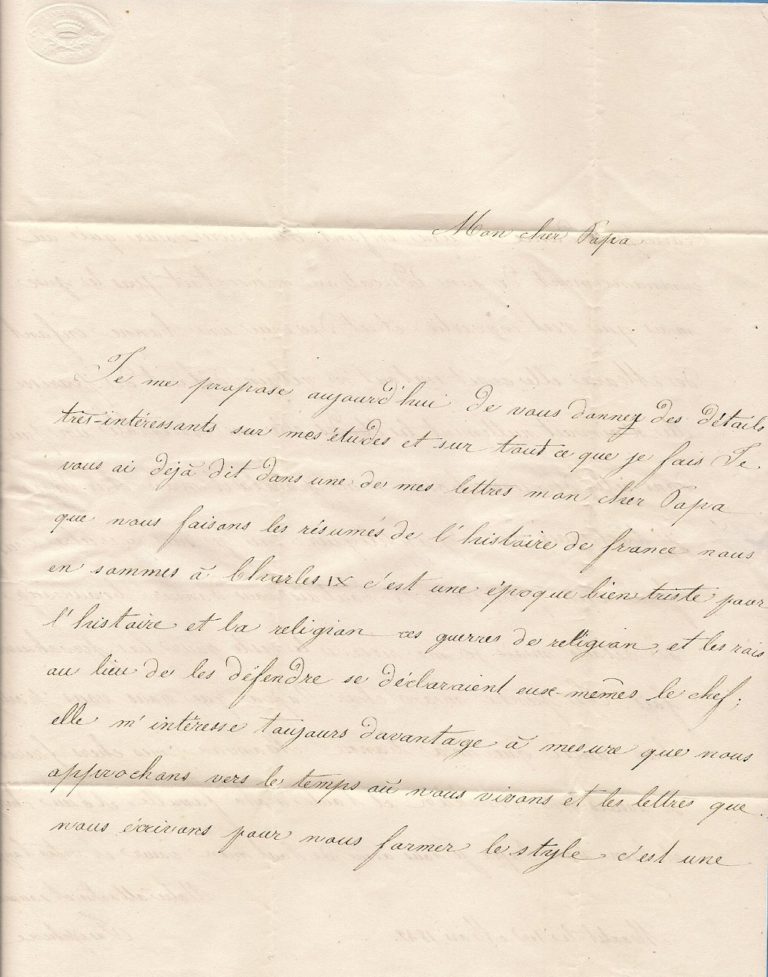 Mon cher Papa
Je me propose aujourd'hui de vous donnez des détails
très-intéressants sur mes études et sur tout ce que je fais Je
vous ai déjà dit dans une de mes lettres mon cher Papa
que nous faisons les résumés de l'histoire de france nous
en sommes à Charles IX c'est une époque bien triste pour
l'histoire et la religion ces guerres de religion, et les rois
au lieu de les défendre se déclaraient eux-mêmes le chef;
elle m'intéresse toujours davantage à mesure que nous
approchons vers le temps où nous vivons et les lettres que
nous écrivons pour nous former le style c'est une